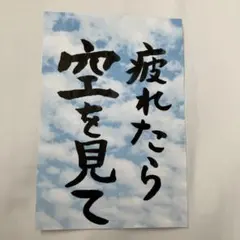 疲れたら
空を見て